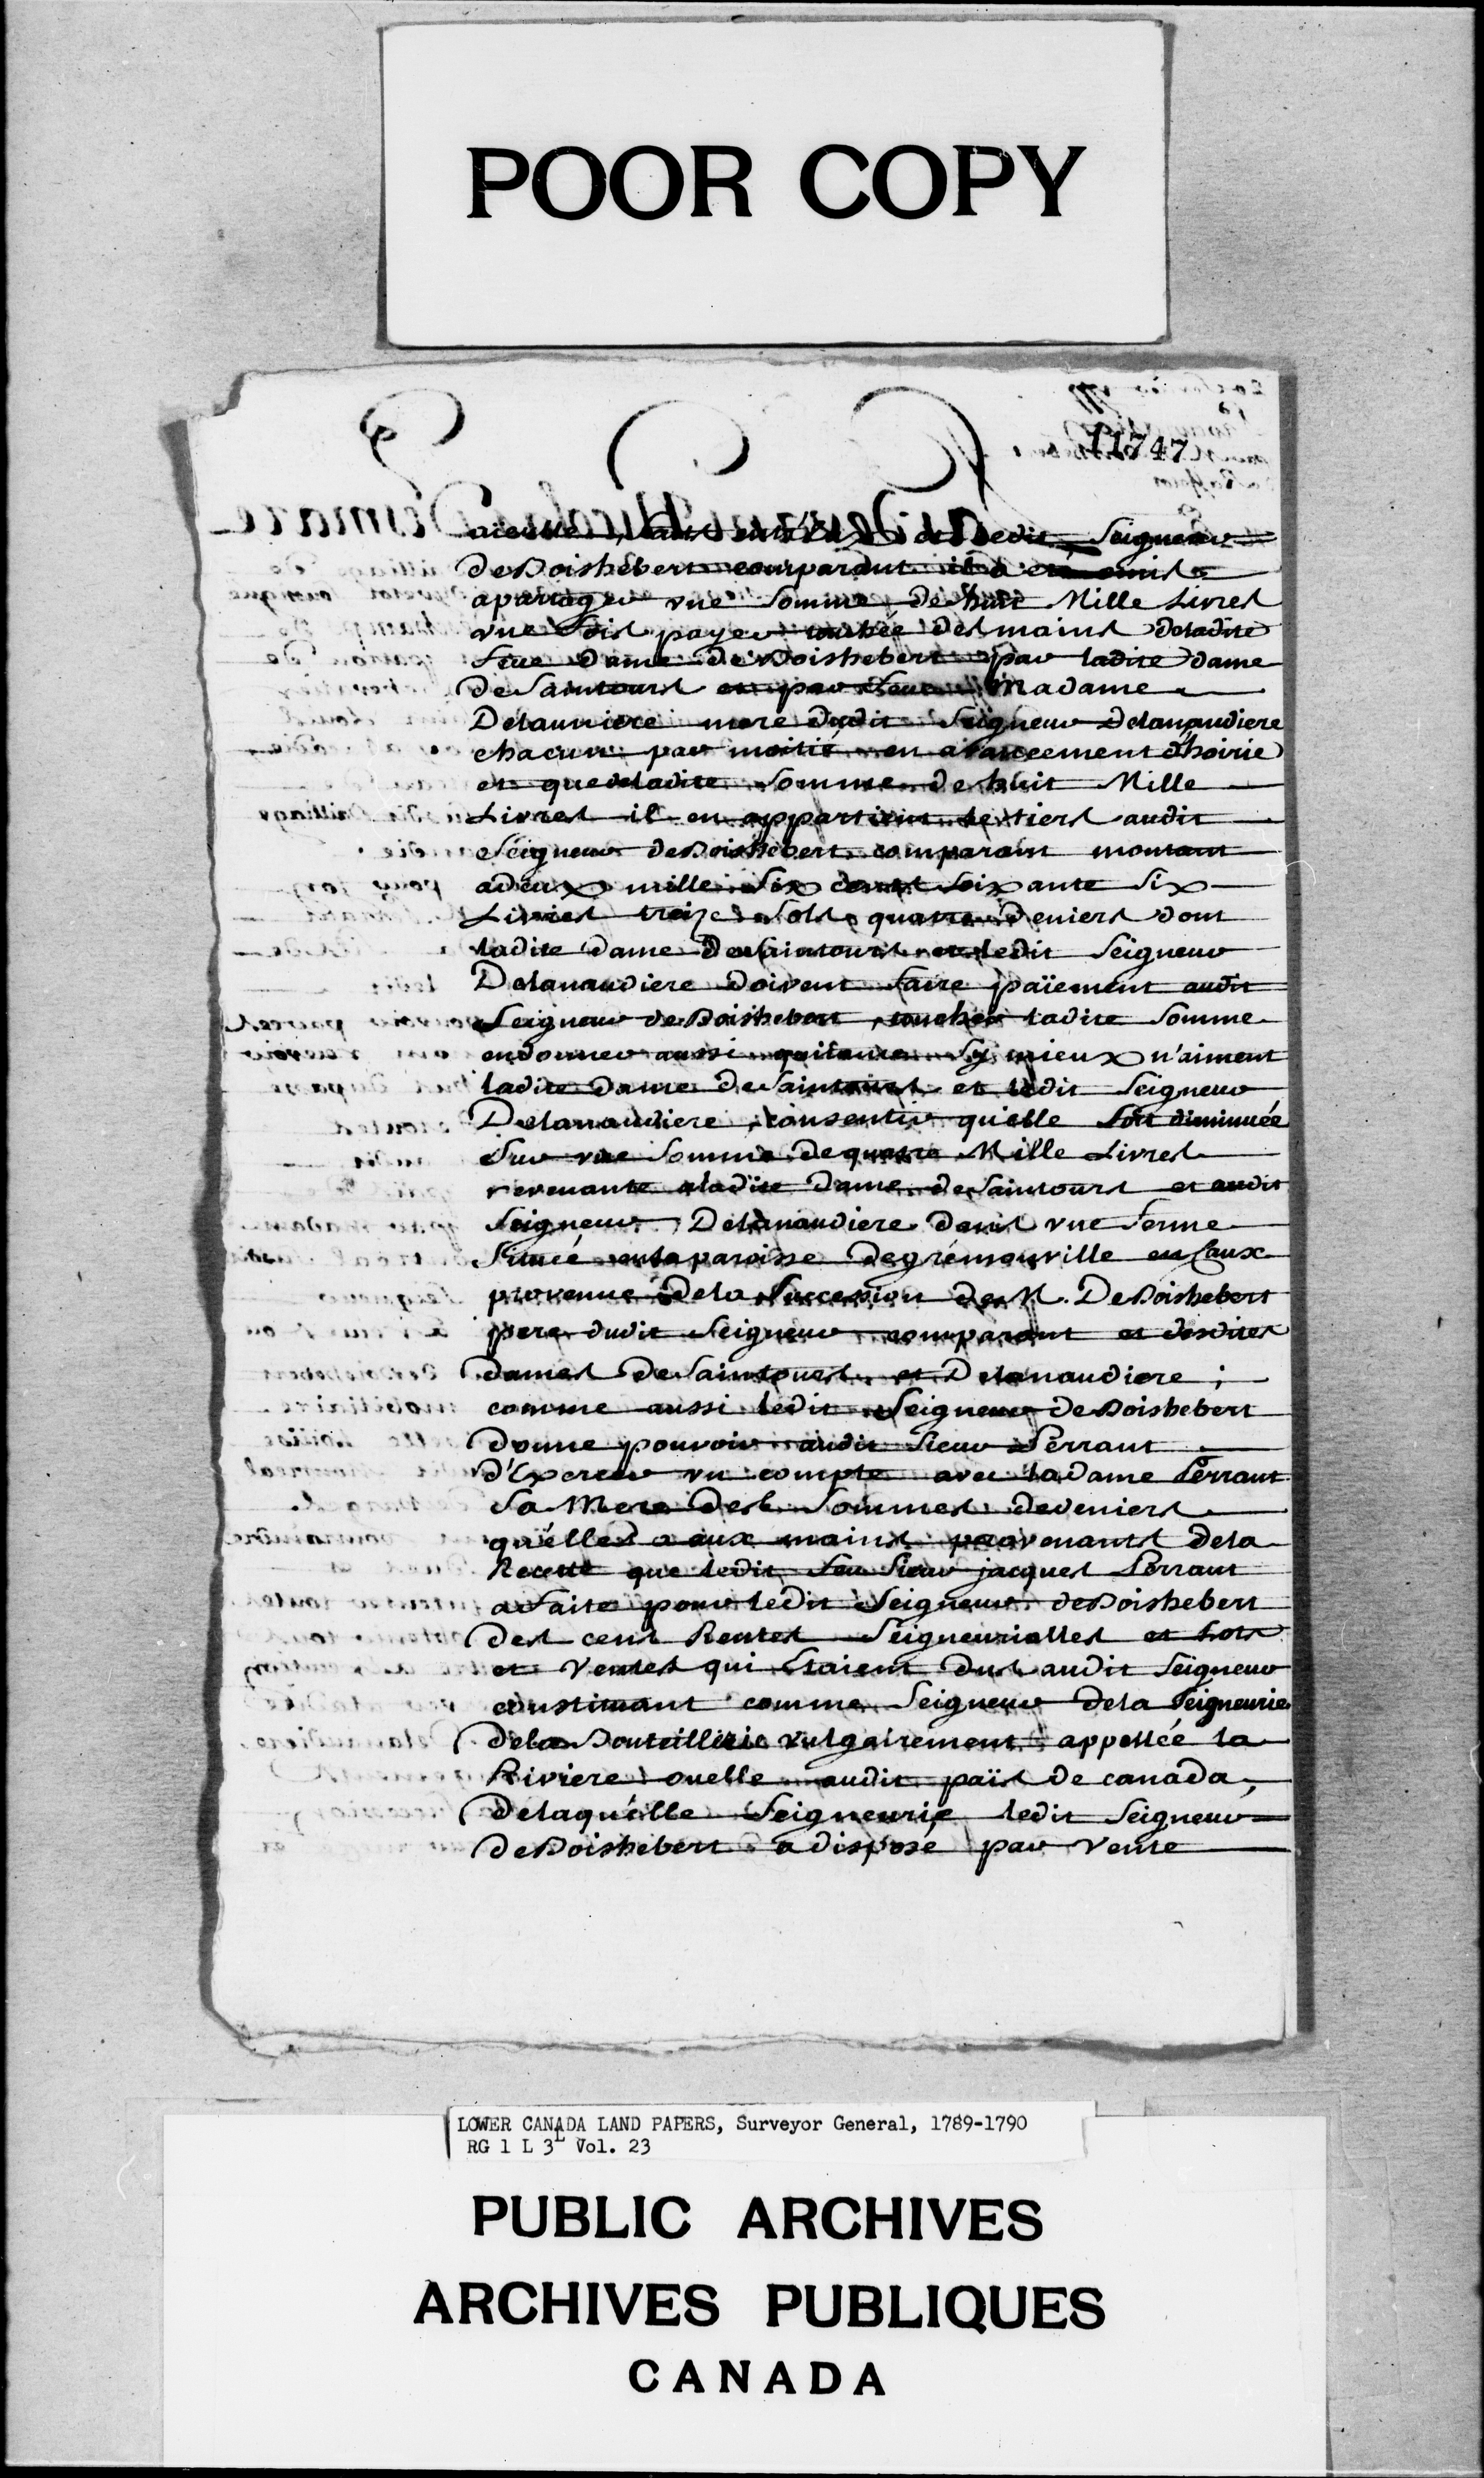 POOR COPY
11747
ledit Seigneur
DeBoishébert comparant il a été omis
apartager une Somme de huit Mille Livres
une fois payer touchée des mains deladite
feue Dame DeBoishebert par ladite Dame
deSaintours et par feue Madame
Delanniere mere dudit Seigneur Delanaudiere
chacune par moitié en avancement d'hoirie
et que deladite Somme de huit Mille
Livres il en appartient le tiers audit
Seigneur deBoishébert comparant montant
adeux mille Six cents Soixante Six
Livres treize Sols quatre Deniers dont
ladite Dame deSaintours et ledit Seigneur
Delanaudiere doivent faire païement audit
Seigneur de Boishebert, toucher ladite Somme
endonner aussi quitance Sy mieux n'aiment
ladite Dame deSaintours et ledit Seigneur
Delanaudiere, consentir qu'elle Soit diminuée
Sur une Somme de quatre Mille Livres
revenante aladite Dame deSaintours et audit
Seigneur Delanaudiere dans une ferme
Situeé en la paroisse Degrémonville en Caux
provenue dela Succession de M. DeBoishebert
pere dudit Seigneur comparant et desdites
Dames DeSaintours et Delanaudiere;
comme aussi ledit Seigneur deBoishebert
Donne pouvoir audit Sieur Perrant
d'Exercer un compte avec la Dame Perrant
Sa Mere des Sommes de deniers
qu'elle a aux mains provenants dela
Recette que ledit feu Sieur jacques Perrant
a faite pour ledit Seigneur deBoishebert
des cens Rentes Seigneurialles et Lots
et Ventes qui Etaient dus audit Seigneur
constituant comme Seigneur dela Seigneurie
dela Bouteillerie vulgairement appellée la
Riviere ouelle audit païs de canada,
delaquélle Seigneurie ledit Seigneur
deBoishébert a disposé par Vente
LOWER CANADA LAND PAPERS, Surveyor General, 1789-1790
RG 1 L 3L Vol. 23
PUBLIC ARCHIVES
ARCHIVES PUBLIQUES
CANADA